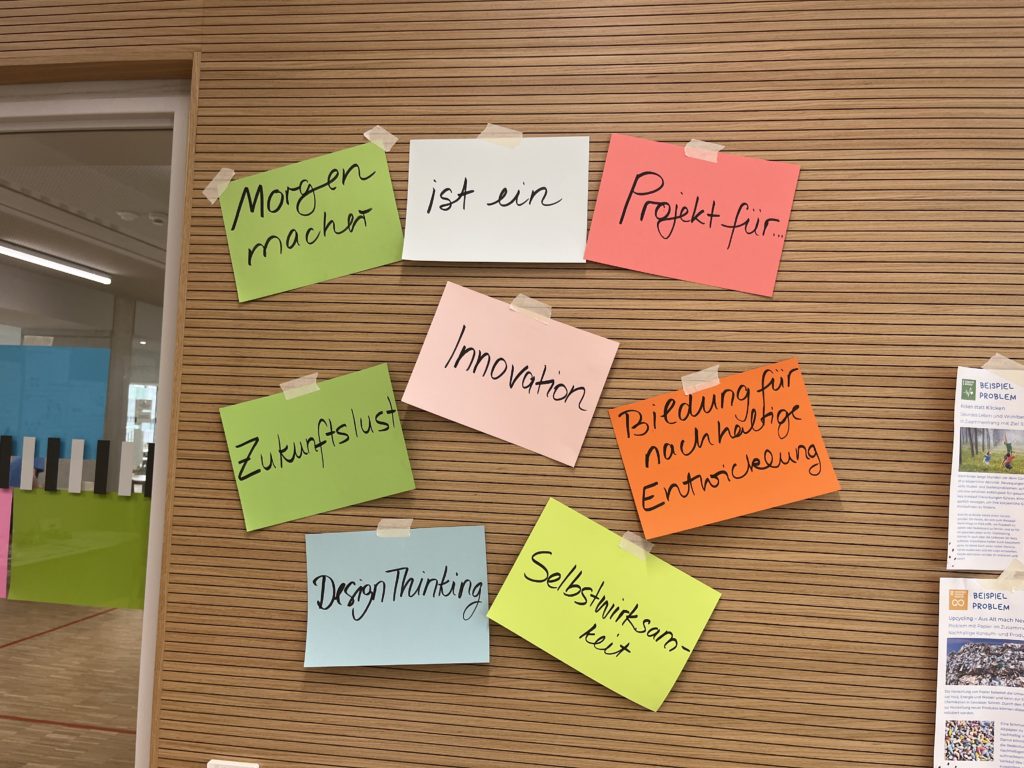 Morgen
macher
ist ein
Projekt für...
Innovation
Zukunftslust
Bildung für
nachhaltige
Entwicklung
Design Thinking
Selbstwirksam-
keit
BEISPIEL
PROBLEM
BEISPIEL
PROBLEM
Upcycling – Aus Alt mach Neu